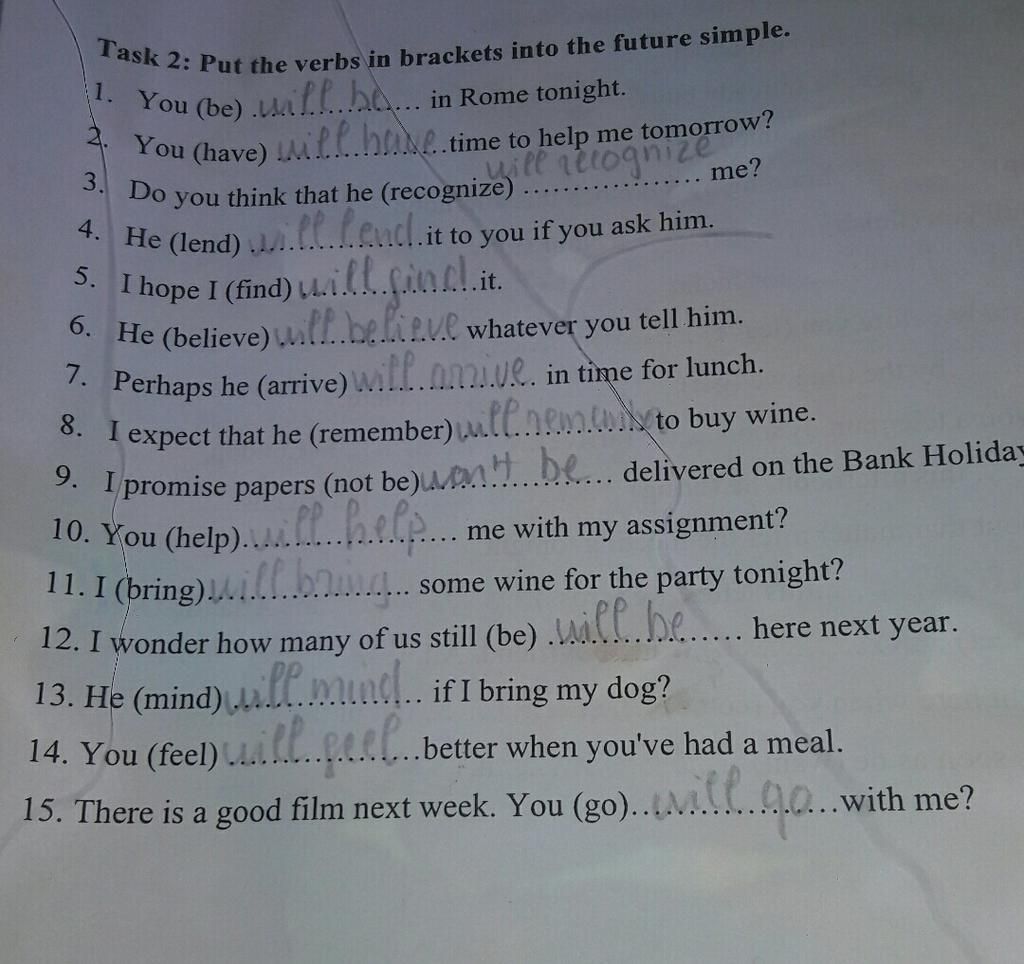 Task 2: Put the verbs in brackets into the future simple.
1. You (be) .will be.... in Rome tonight.
2. You (have) will have.time to help me tomorrow?
3. Do you think that he (recognize) will recognize me?
4. He (lend) will lend.it to you if you ask him.
5. I hope I (find) will find.it.
6. He (believe) will believe whatever you tell him.
7. Perhaps he (arrive) will arrive. in time for lunch.
8. I expect that he (remember) will remember to buy wine.
9. I promise papers (not be) won't be... delivered on the Bank Holiday
10. You (help).will help... me with my assignment?
11. I (bring).will bring.. some wine for the party tonight?
12. I wonder how many of us still (be) .will be...... here next year.
13. He (mind) will mind.. if I bring my dog?
14. You (feel) will feel..better when you've had a meal.
15. There is a good film next week. You (go)..will go..with me?